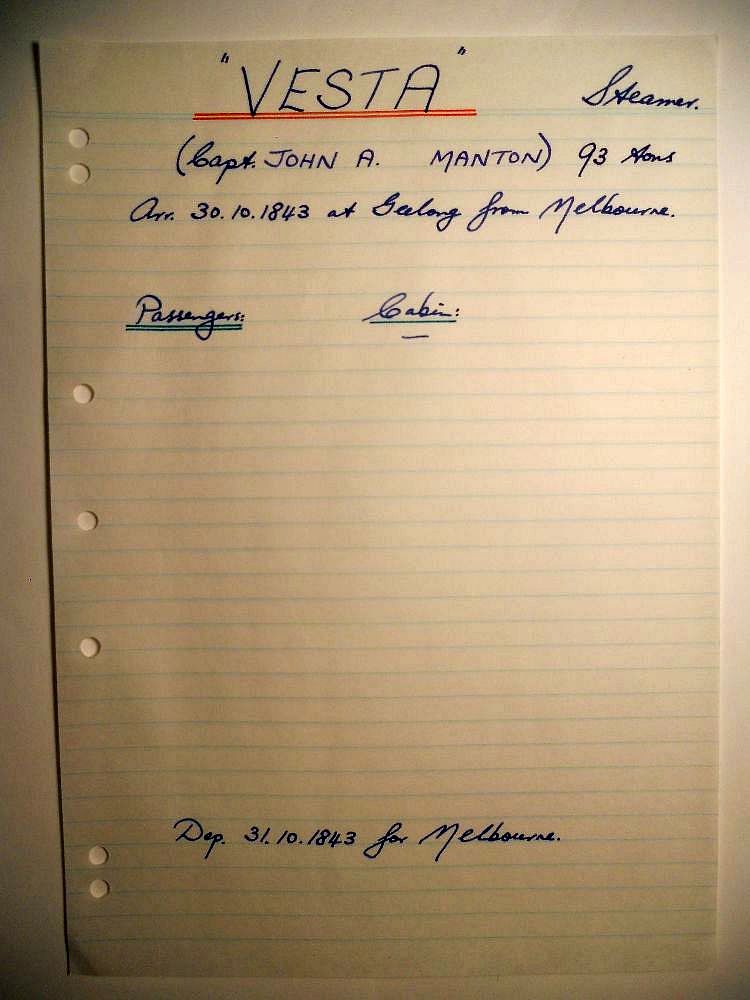 "VESTA" Steamer.
(Capt. JOHN A. MANTON) 93 tons
Arr. 30.10.1843 at Geelong from Melbourne.
Passengers: Cabin:
—
Dep. 31.10.1843 for Melbourne.